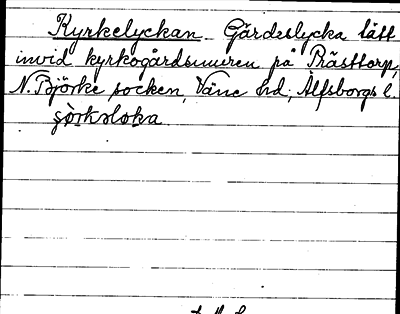 Kyrkelyckan. Gärdeslycka tätt
invid kyrkogårdsmuren på Prästtorp,
N. Björke socken, Väne hd, Älfsborgs l.